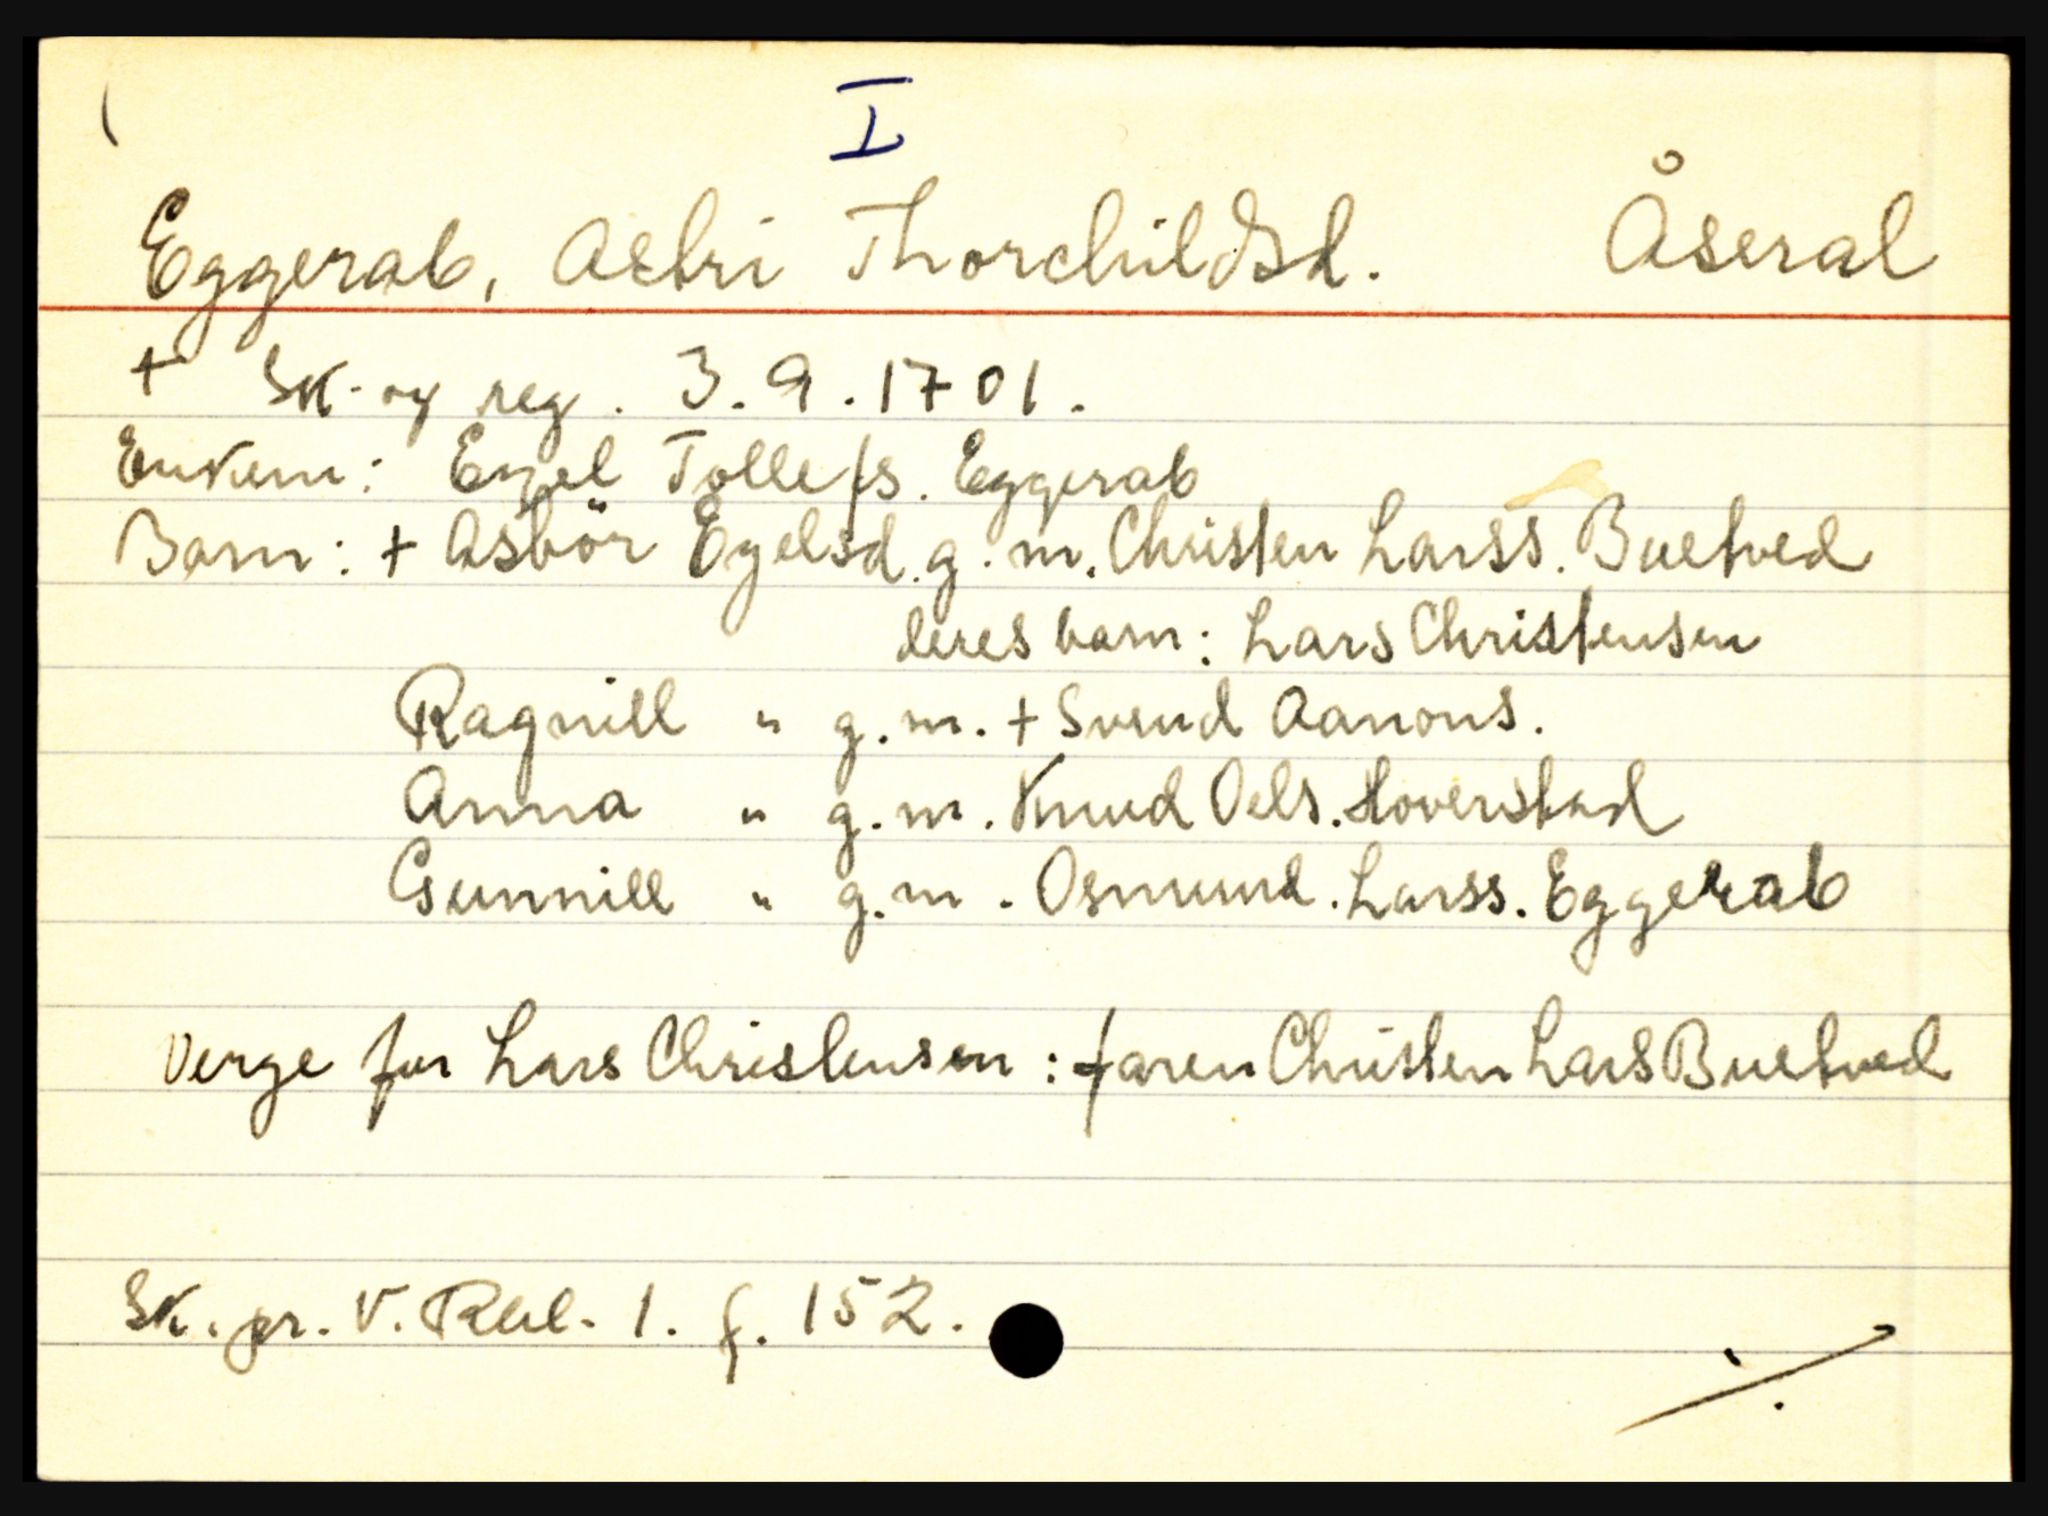 I
Eggerab, Aebri Thorchildsd. Åseral
+ Sk- og reg. 3.9.1701.
Enkem: Egel Tollefs. Eggerab
Barn: + Asbör Egelsd. g.m. Christen Larss. Buetved
deres barn: Lars Christensen
Ragnill " g.m. + Svend Aanons.
Anna " g.m. Knud Oels. Hoverstad
Gunnill " g.m. Osmund. Larss. Eggerab
Verge for Lars Christensen: faren Christen Lars Buetved
Sk. pr. V. Rbl. 1. f. 152.
./.